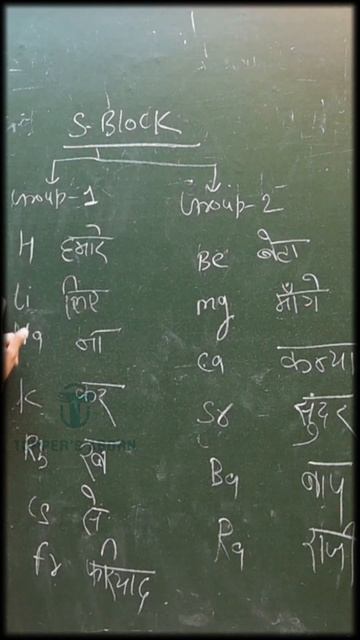 S-BLOCK
Group-1 Group-2
H हमारे Be बेटा
Li लिए mg माँगे
Na ना Ca कन्या
K कर Sr सुंदर
Rb रब Ba बाप
Cs से Ra राजी
fr फरियाद